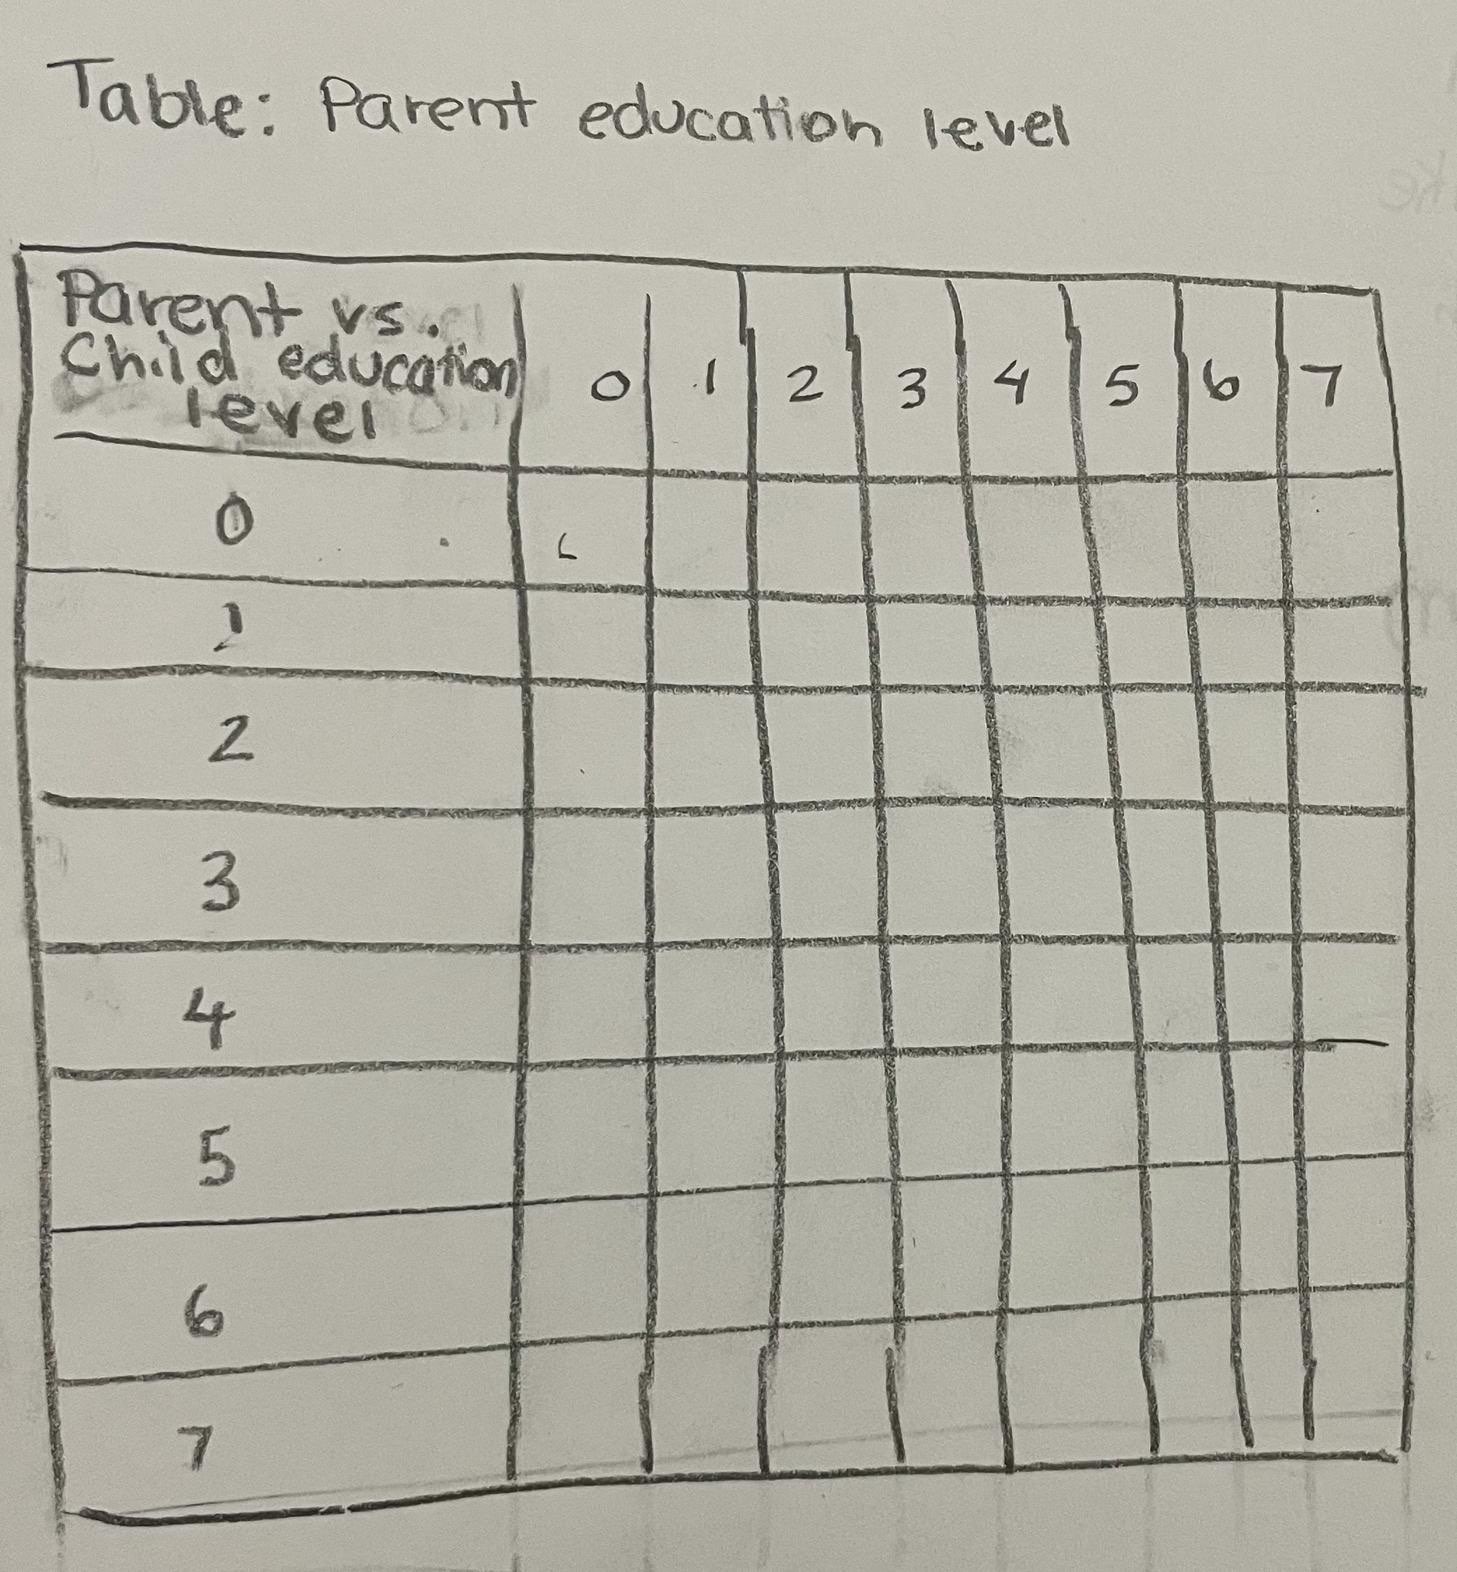 Table: Parent education level
Parent vs.
Child education
level
0 1 2 3 4 5 6 7
0
1
2
3
4
5
6
7